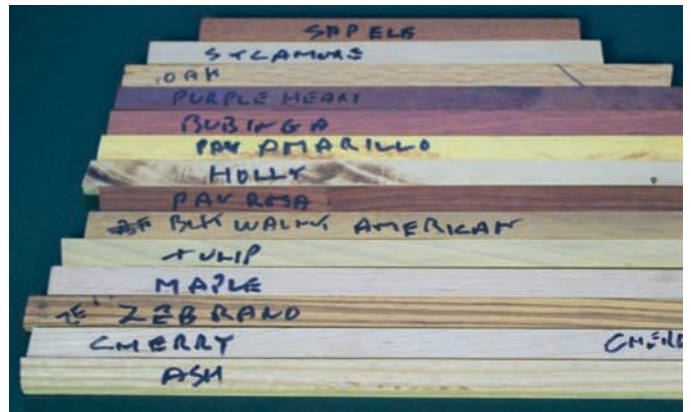 SAPELE
SYCAMORE
OAK
PURPLE HEART
BUBINGA
PAU AMARILLO
HOLLY
PAU ROSA
BLK WALNT AMERICAN
TULIP
MAPLE
ZEBRANO
CHERRY CHERR
ASH